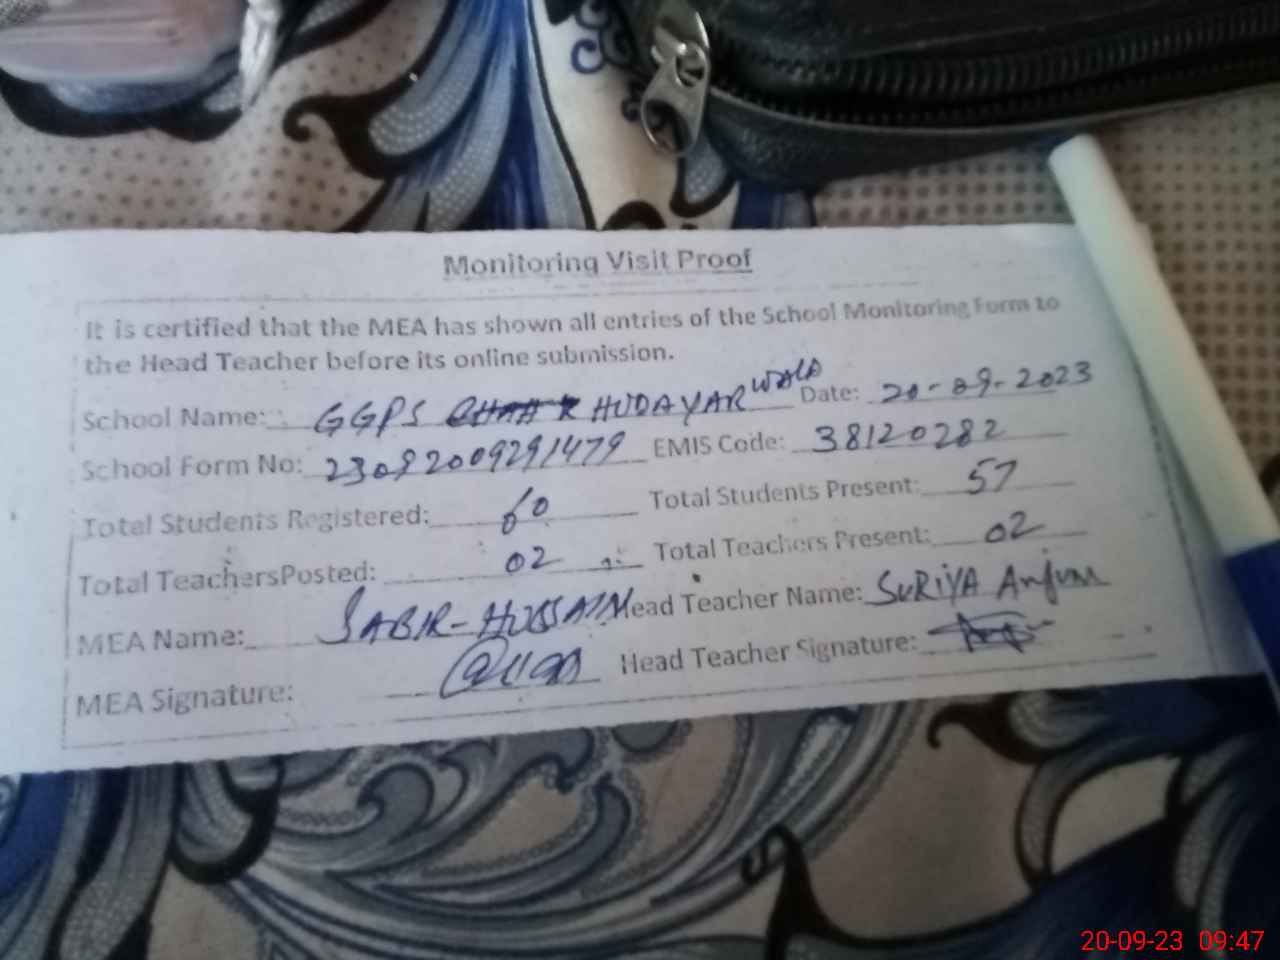 Monitoring Visit Proof
It is certified that the MEA has shown all entries of the School Monitoring Form to
the Head Teacher before its online submission.
School Name: GGPS HUDAYAR WALA Date: 20-09-2023
School Form No: 23092009291479 EMIS Code: 38120282
Total Students Registered: 60 Total Students Present: 57
Total TeachersPosted: 02 Total Teachers Present: 02
MEA Name: SABIR-HUSSAIN Head Teacher Name: SURIYA Anjum
MEA Signature: Head Teacher Signature:
20-09-23 09:47